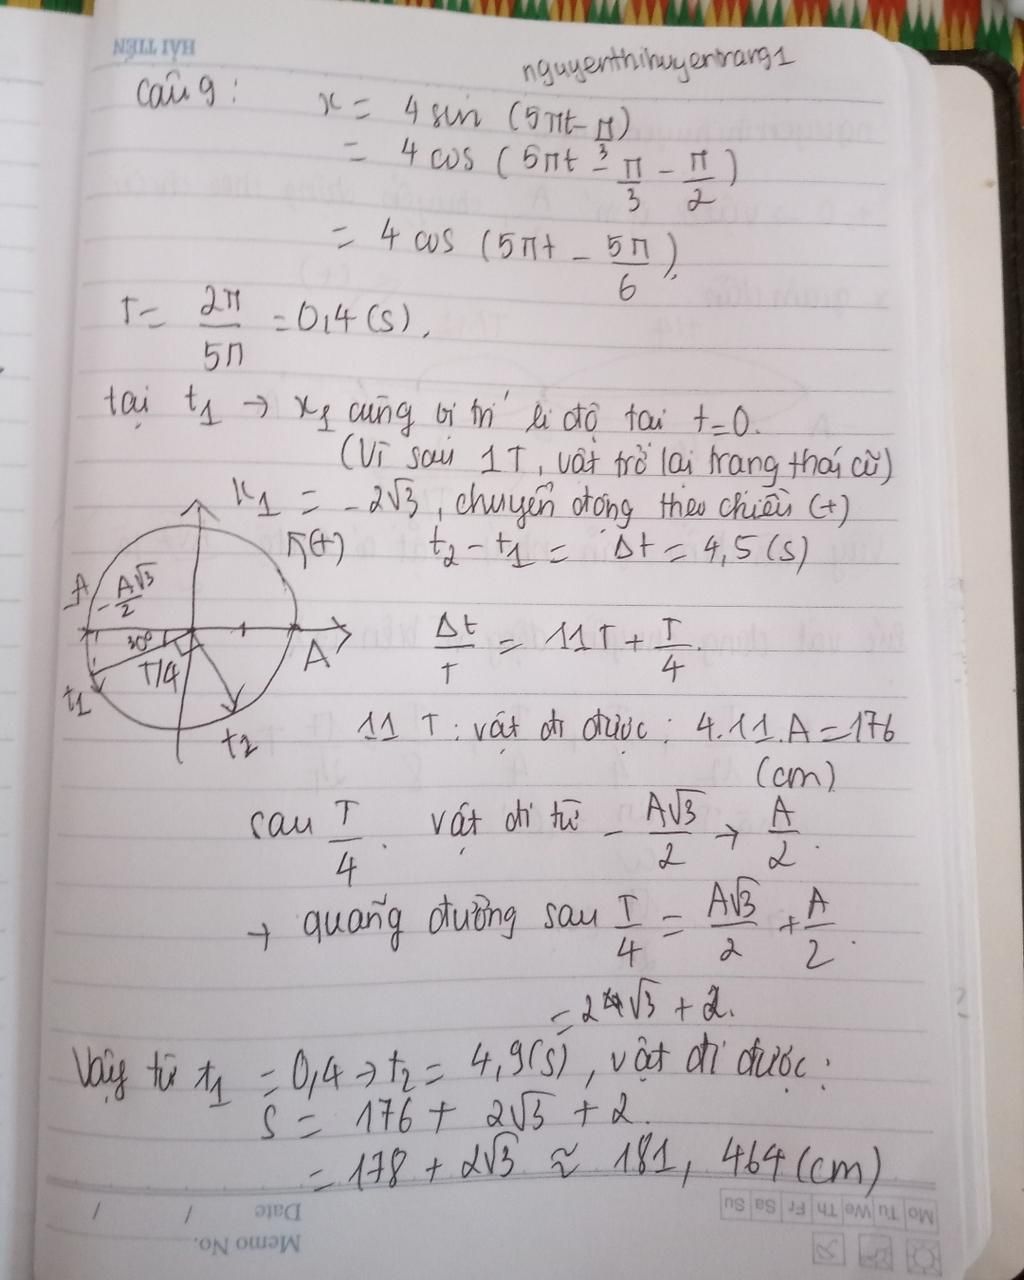 HẢI TIẾN
nguyenthihuyentrang1
Câu 9:
x = 4 sin (5πt - π/3)
= 4 cos (5πt - π/3 - π/2)
= 4 cos (5πt - 5π/6)
T = 2π/5π = 0,4 (s).
tại t1 → x1 cùng vị trí li độ tại t=0.
(Vì sau 1T, vật trở lại trạng thái cũ)
x1 = -2√3, chuyển động theo chiều (+)
(+) t2 - t1 = Δt = 4,5 (s)
-A
-A√3/2
30°
T/4
A
t1
t2
Δt/T = 11T + T/4.
11 T : vật đi được : 4.11.A = 176
(cm)
sau T/4. vật đi từ - A√3/2 → A/2.
→ quãng đường sau T/4 = A√3/2 + A/2.
= 2√3 + 2.
Vậy từ t1 = 0,4 → t2 = 4,9(s), vật đi được:
S = 176 + 2√3 + 2.
= 178 + 2√3 ≈ 181,464 (cm)
Mo Tu We Th Fr Sa Su
Date / /
Memo No.